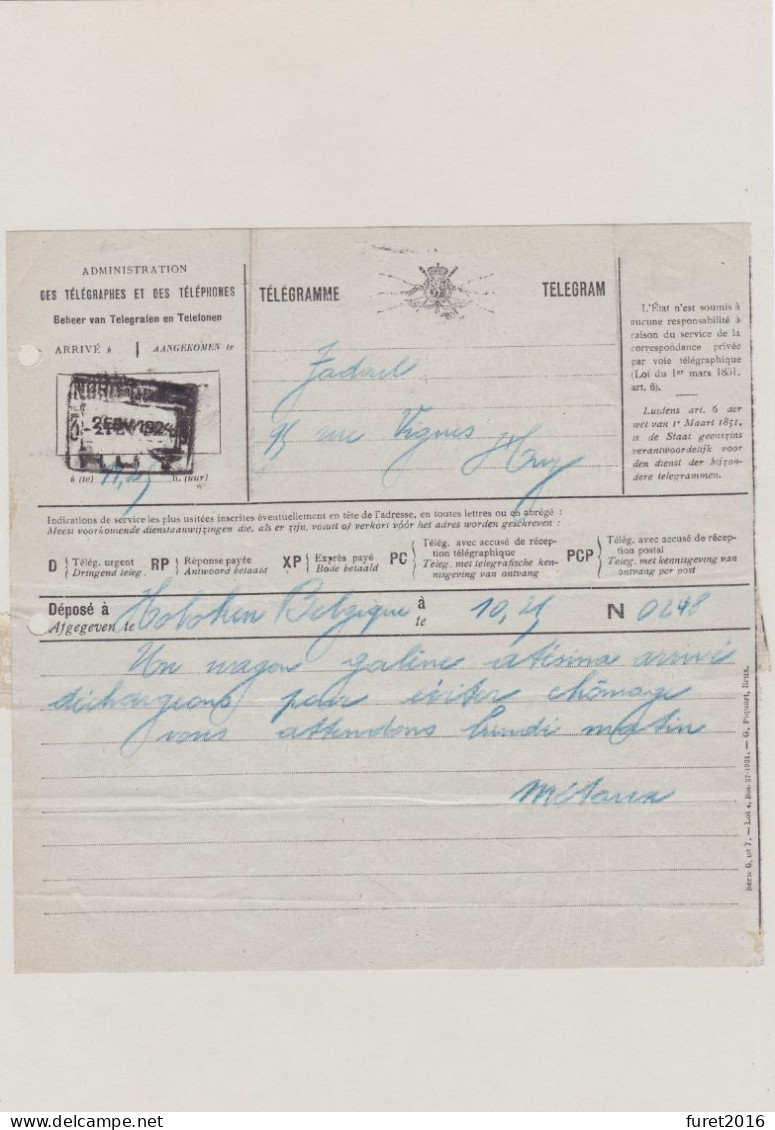 ADMINISTRATION
DES TÉLÉGRAPHES ET DES TÉLÉPHONES
Beheer van Telegrafen en Telefonen
ARRIVÉ à
AANGEKOMEN te
2 FEV 1924
à (te) 11,25 h. (uur)
TÉLÉGRAMME
TELEGRAM
95 rue Vignes
Huy
L'État n'est soumis à
aucune responsabilité à
raison du service de la
correspondance privée
par voie télégraphique
(Loi du 1er mars 1851,
art. 6).
Luidens art. 6 der
wet van 1n Maart 1851,
is de Staat geenszins
verantwoordelijk voor
den dienst der bijzon-
dere telegrammen.
Indications de service les plus usitées inscrites éventuellement en tête de l'adresse, en toutes lettres ou en abrégé :
Meest voorkomende dienstaanwijzingen die, als er zijn, voluit of verkort vóór het adres worden geschreven :
D Télég. urgent
Dringend teleg.
RP Réponse payée
Antwoord betaald
XP Exprès payé
Bode betaald
PC Télég. avec accusé de récep-
tion télégraphique
Teleg. met telegrafische ken-
nisgeving van ontvang
PCP Télég. avec accusé de récep-
tion postal
Teleg. met kennisgeving van
ontvang per post
Déposé à Hoboken Belgique à 10,25 N 0248
Afgegeven te te
Un wagon galène atisina arrivé
déchargeons pour éviter chômage
vous attendons lundi matin
Série G, no 7. — Lot 4, Bon 37-1921. — G. Piquart, Brux.
furet2016